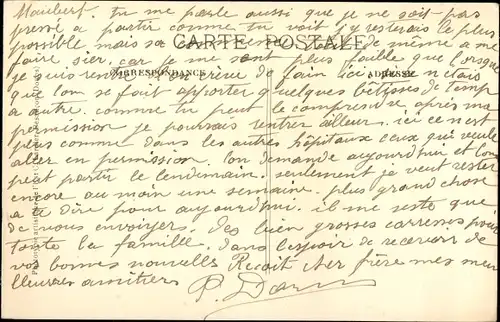 Maubert. tu me parle aussi que je ne soit pas
pressé a partir comme tu voit j'y resterais le plus
possible mais sa commence tout de même a me
CARTE POSTALE
faire sier. car je me sent plus faible que lorsque
je suis rentré. je crève de faim ici
CORRESPONDANCE
ADRESSE
que l'on se fait apporter quelques bêtises de temp
a autre. comme tu peut le comprendre après ma
permission je pourrais rentrer ailleur. ici ce n'est
pas comme dans les autres hôpitaux ceux qui veule
aller en permission. l'on demande aujourd'hui et l'on
peut partir le lendemain. seulement je veut rester
encore au moin une semaine. plus grand chose
a te dire pour aujourd'hui. il me reste que
de vous envoyer. des bien grosses carresses pour
toute la famille. dans l'espoir de recevoir de
vos bonnes nouvelles Recoit cher frère mes meil
lleures amitiés
P.